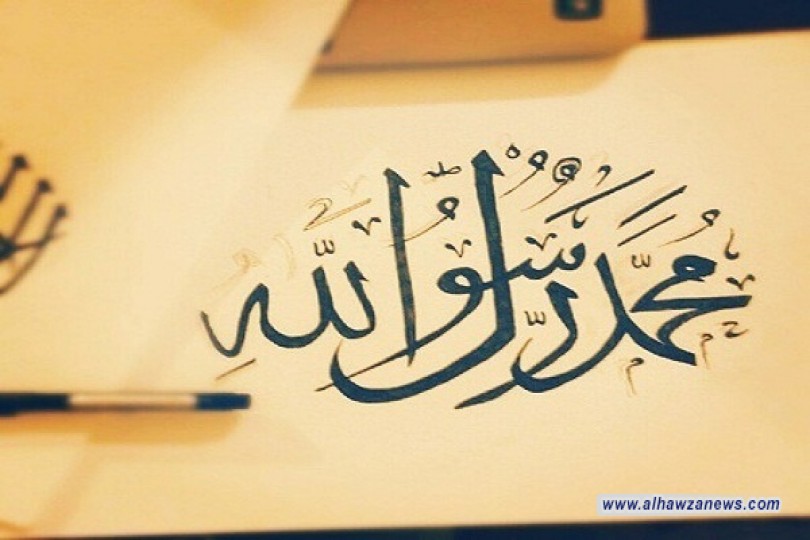 محمد رسول الله
www.alhawzanews.com